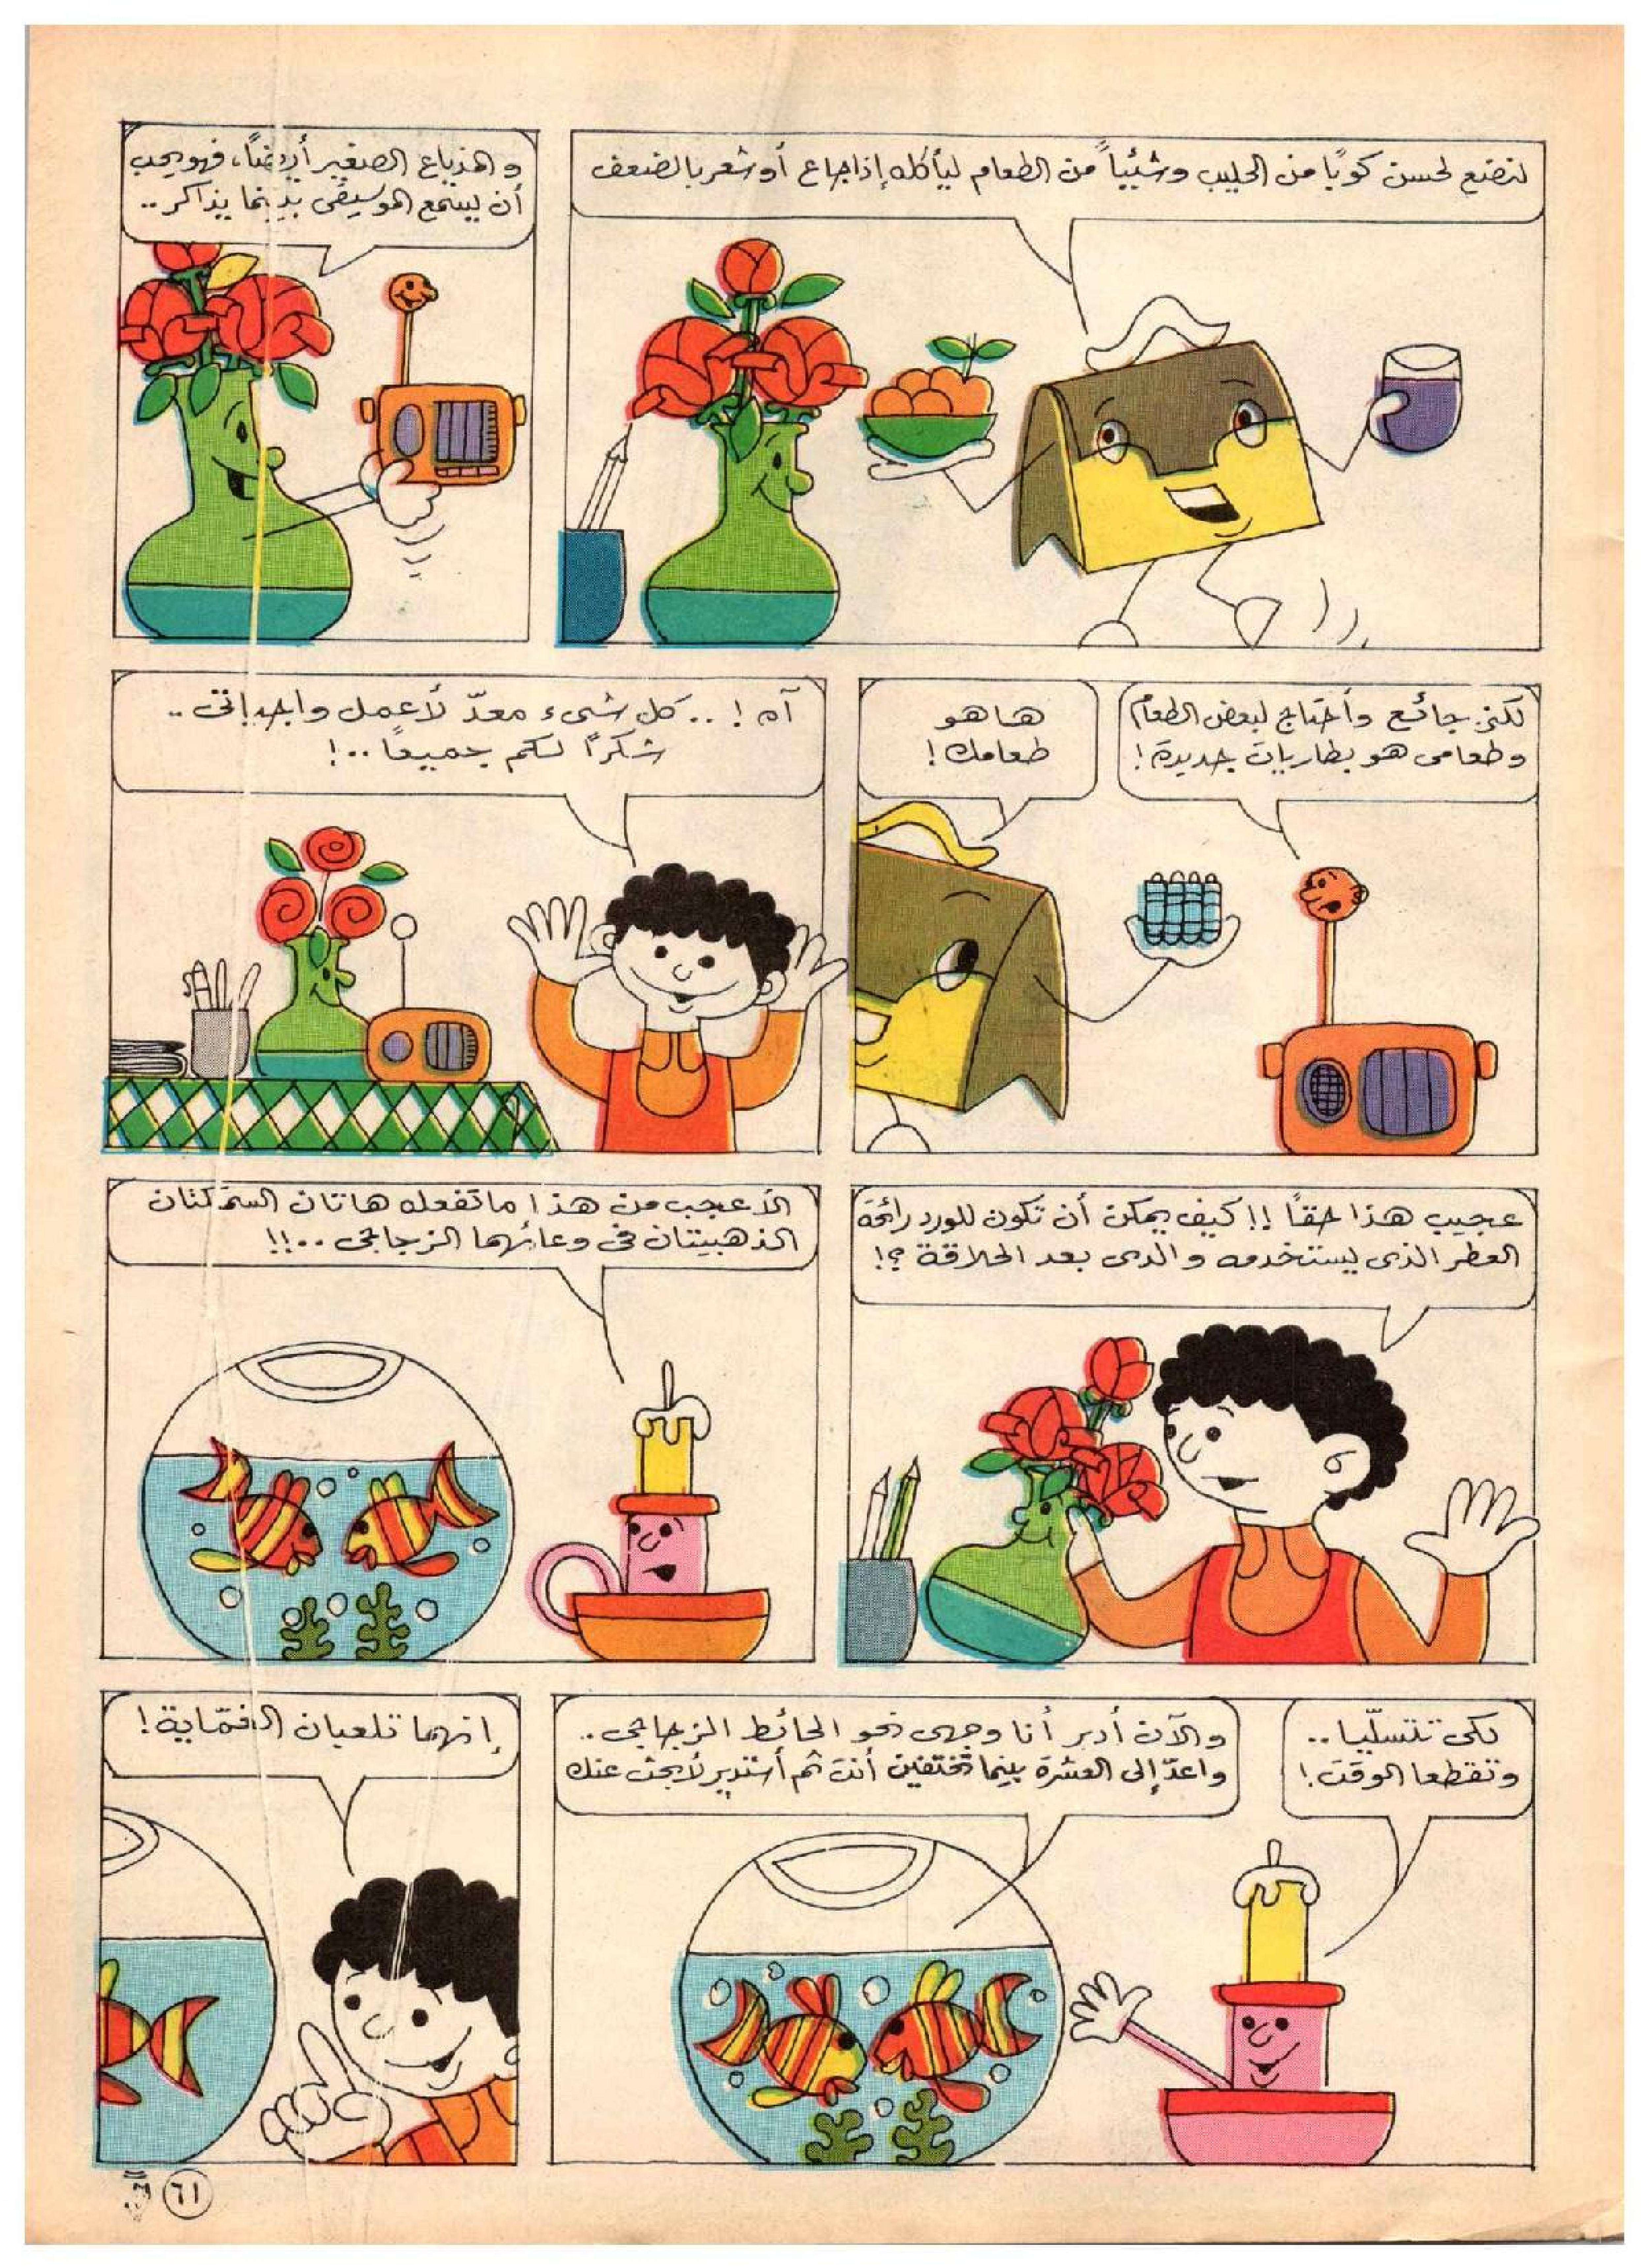 لنضع لحسن كوبًا من الحليب وشيئًا من الطعام ليأكله إذا جاع أو شعر بالضعف
و المذياع الصغير أيضًا، فهو يحب
أن يسمع الموسيقى بينما يذاكر ..
لكني جائع وأحتاج لبعض الطعام
وطعامى هو بطاريات جديدة!
ها هو
طعامك!
آه! .. كل شىء معدّ لأعمل واجباتى ..
شكرًا لكم جميعًا ..!
عجيب هذا حقًا !! كيف يمكن أن تكون للورد رائحة
العطر الذى يستخدمه والدى بعد الحلاقة ؟!
الأعجب من هذا ما تفعله هاتان السمكتان
الذهبيتان فى وعائهما الزجاجى ..!!
لكى تتسلّيا ..
وتقطعا الوقت!
والآن أدير أنا وجهى نحو الحائط الزجاجى ..
واعدّ إلى العشرة بينما تختفين أنت ثم أستدير لأبحث عنك
إنهما تلعبان الغمّاية!
٦١